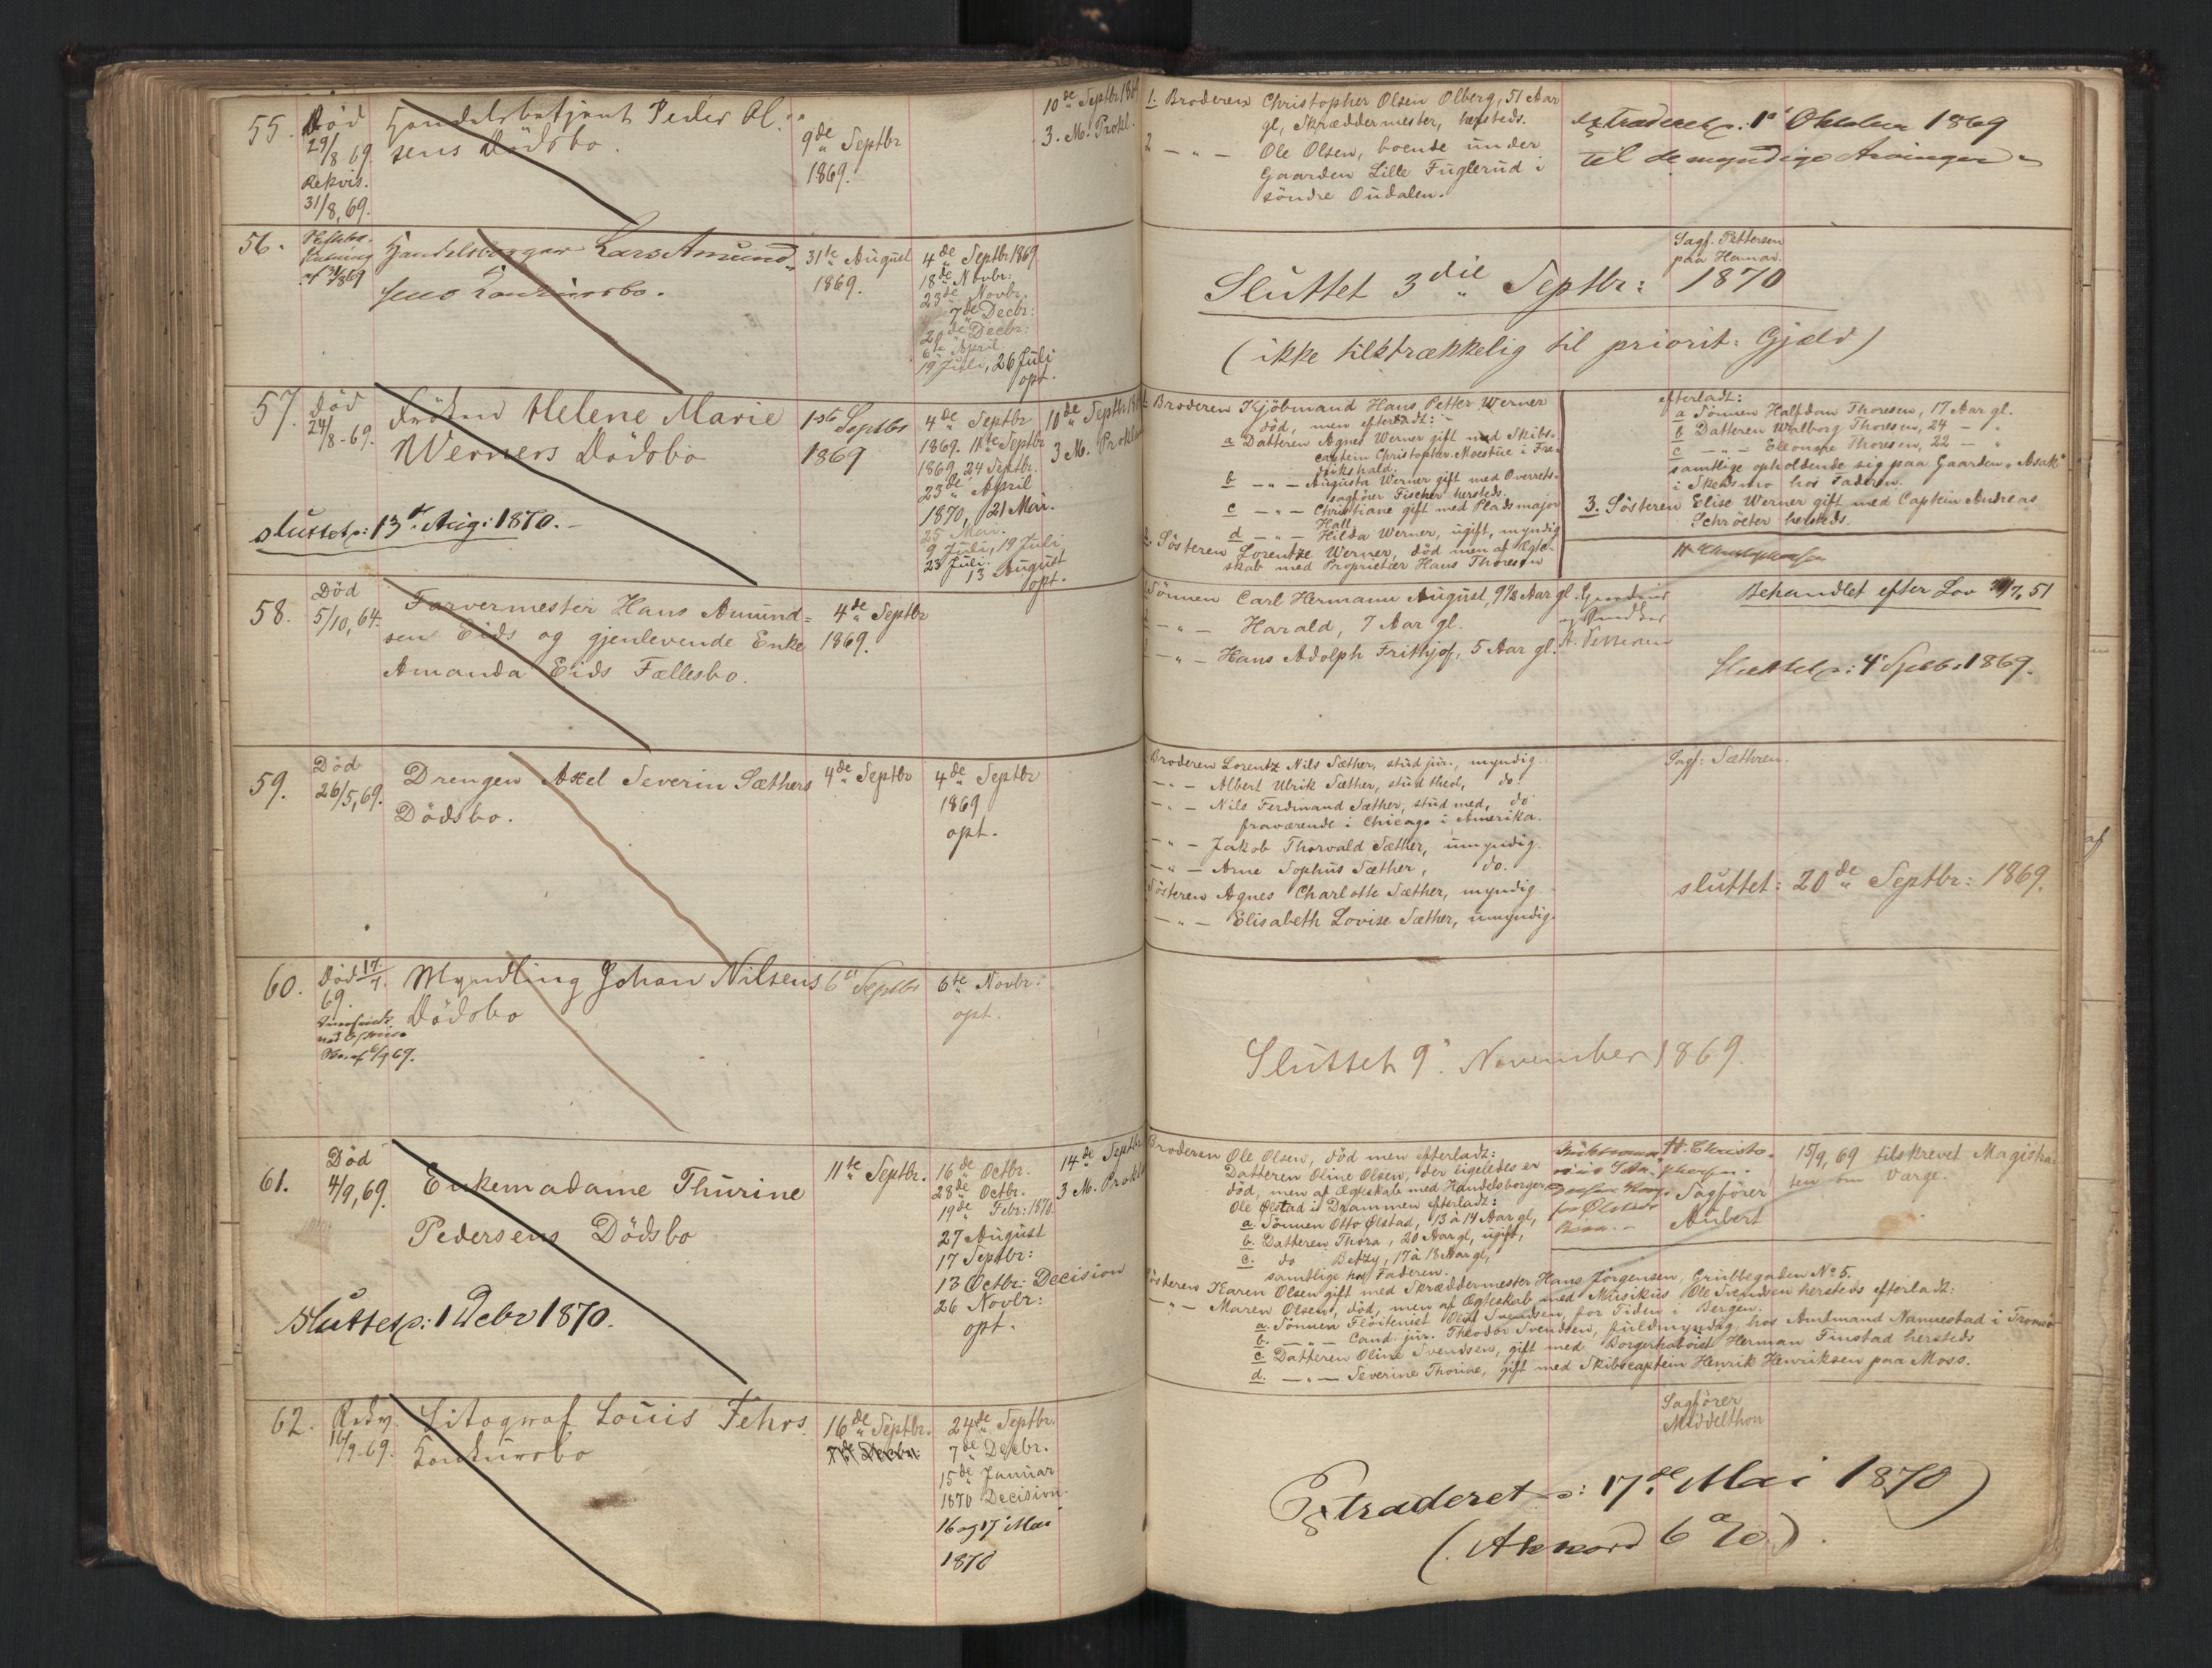 55.
Död
29/8 69.
Rekvis.
31/8, 69.
Handelsbetjent Peder Ol-
sens Dödsbo.
9de Septbr
1869.
10de Septbr 186
3. M. Prokl.
1. Broderen Christopher Olsen Olberg, 51 Aar
gl, Skræddermester, hersteds.
2 — " — Ole Olsen, boende under
Gaarden Lille Fuglerud i
söndre Oudalen.
extraderet p: 1' Oktober 1869
til de myndige Arvinger
56.
af 31/8 69
Handelsborger Lars Amund-
sens Konkursbo.
31te August
1869.
4de Septbr 1869.
18de Novbr:
23de Novbr.
7de Decbr:
20de Decbr:
6te April.
19 Juli, 26 Juli
opt.
Sagf. Pettersen
paa Hamar.
Sluttet 3die Septbr: 1870
(ikke tilstrækkelig til priorit: Gjæld)
57.
Död
24/8-69.
Fröken Helene Marie
Werners Dödsbo
sluttet p: 13de Aug: 1870.-
1ste Septbr
1869
4de Septbr
1869. 11te Septbr
1869, 24 Septbr.
23de April
1870, 21 Mai.
25 Mai.
9 Juli, 19 Juli
23 Juli.
13 August
opt.
10de Septbr 18
3 M. Proklam
Broderen Kjöbmand Hans Petter Werner
död, men efterladt:
a Datteren Agnes Werner gift med Skibs-
captein Christopher Moestue i Fre-
drikshald.
b — " — Augusta Werner gift med Overrets-
sagförer Fischer hersteds.
c — " — Christiane gift med Pladsmajor
Hall
d — " — Hilda Werner, ugift, myndig
2. Sösteren Lorentze Werner, död men af Ægte-
skab med Proprietær Hans Thoresen
efterladt:
a Sönnen Halfdan Thoresen, 17 Aar gl.
b Datteren Walborg Thoresen, 24 — "
c — " — Eleonore Thoresen, 22 — "
samtlige opholdende sig paa Gaarden "Asak"
i Skedsmo hos Faderen.
3. Sösteren Elise Werner gift med Captein Andreas
Schröeter hersteds.
H. Christophersen
58.
Död
5/10, 64.
Farvermester Hans Amund-
sen Eids og gjenlevende Enke
Amanda Eids Fællesbo.
4de Septbr
1869.
Sönnen Carl Hermann August, 9 1/2 Aar gl.
— " — Harald, 7 Aar gl.
— " — Hans Adolph Frithjof, 5 Aar gl.
Behandlet efter Lov /7, 51
Sluttet p: 4' Septbr 1869.
59.
Död
26/5, 69.
Drengen Axel Severin Sæthers
Dödsbo.
4de Septbr
4de Septbr
1869
opt.
Broderen Lorentz Nils Sæther, stud jur., myndig
— " — Albert Ulrik Sæther, stud theol, do.
— " — Nils Ferdinand Sæther, stud med, do
fraværende i Chicago i Amerika.
— " — Jakob Thorvald Sæther, umyndig.
— " — Arne Sophus Sæther, do.
Sösteren Agnes Charlotte Sæther, myndig
— " — Elisabeth Lovise Sæther, umyndig.
Sagf: Sæthren.
sluttet: 20de Septbr: 1869.
60.
Död 17/7.
69.
af 6/9 69.
Myndling Johan Nilsens
Dödsbo
6te Septbr
6te Novbr:
opt.
Sluttet 9' November 1869.
61.
Död
4/9, 69.
Enkemadame Thurine
Pedersens Dödsbo
Sluttet p: 1 Debr 1870.
11te Septbr.
16de Octbr.
28de Octbr.
19de Febr: 1870.
27 August
17 Septbr:
13 Octbr: Decision
26 Novbr:
opt.
14de Septbr
3 M. Prokl
Broderen Ole Olsen, död men efterladt:
Datteren Oline Olsen, der ligeledes er
död, men af Ægteskab med Handelsborger
Ole Ølstad i Drammen efterladt:
a. Sönnen Otto Ølstad, 13 à 14 Aar gl,
b. Datteren Thora, 20 Aar gl, ugift,
c. do Betzy, 17 à 18 Aar gl,
samtlige hos Faderen.
Sösteren Karen Olsen gift med Skræddermester Hans Jörgensen, Grubbegaden No 5.
— " — Maren Olsen, död, men af Ægteskab med Musikus Ole Svendsen hersteds efterladt:
a. Sönnen Flöitenist Oluf Svendsen, for Tiden i Bergen.
b. — " — Cand. jur. Theodor Svendsen, fuldmyndig, hos Amtmand Nannestad i Tromsö
c. Datteren Oline Svendsen, gift med Borgerhaböiet Herman Finstad hersteds
d. — " — Severine Thorine, gift med Skibscaptein Henrik Henriksen paa Moss.
H. Christo-
phersen.
Sagförer
Aubert
15/9, 69 tilskrevet Magistra-
ten om Værge.
62.
16/9-69.
Litograf Louis Fehrs
Konkursbo
16de Septbr.
24de Septbr.
7de Decbr.
15de Januar
1870 Decision.
16 og 17' Mai
1870
Sagförer
Middelthon
Extraderet p: 17de Mai 1870
(Akkord 6 %).